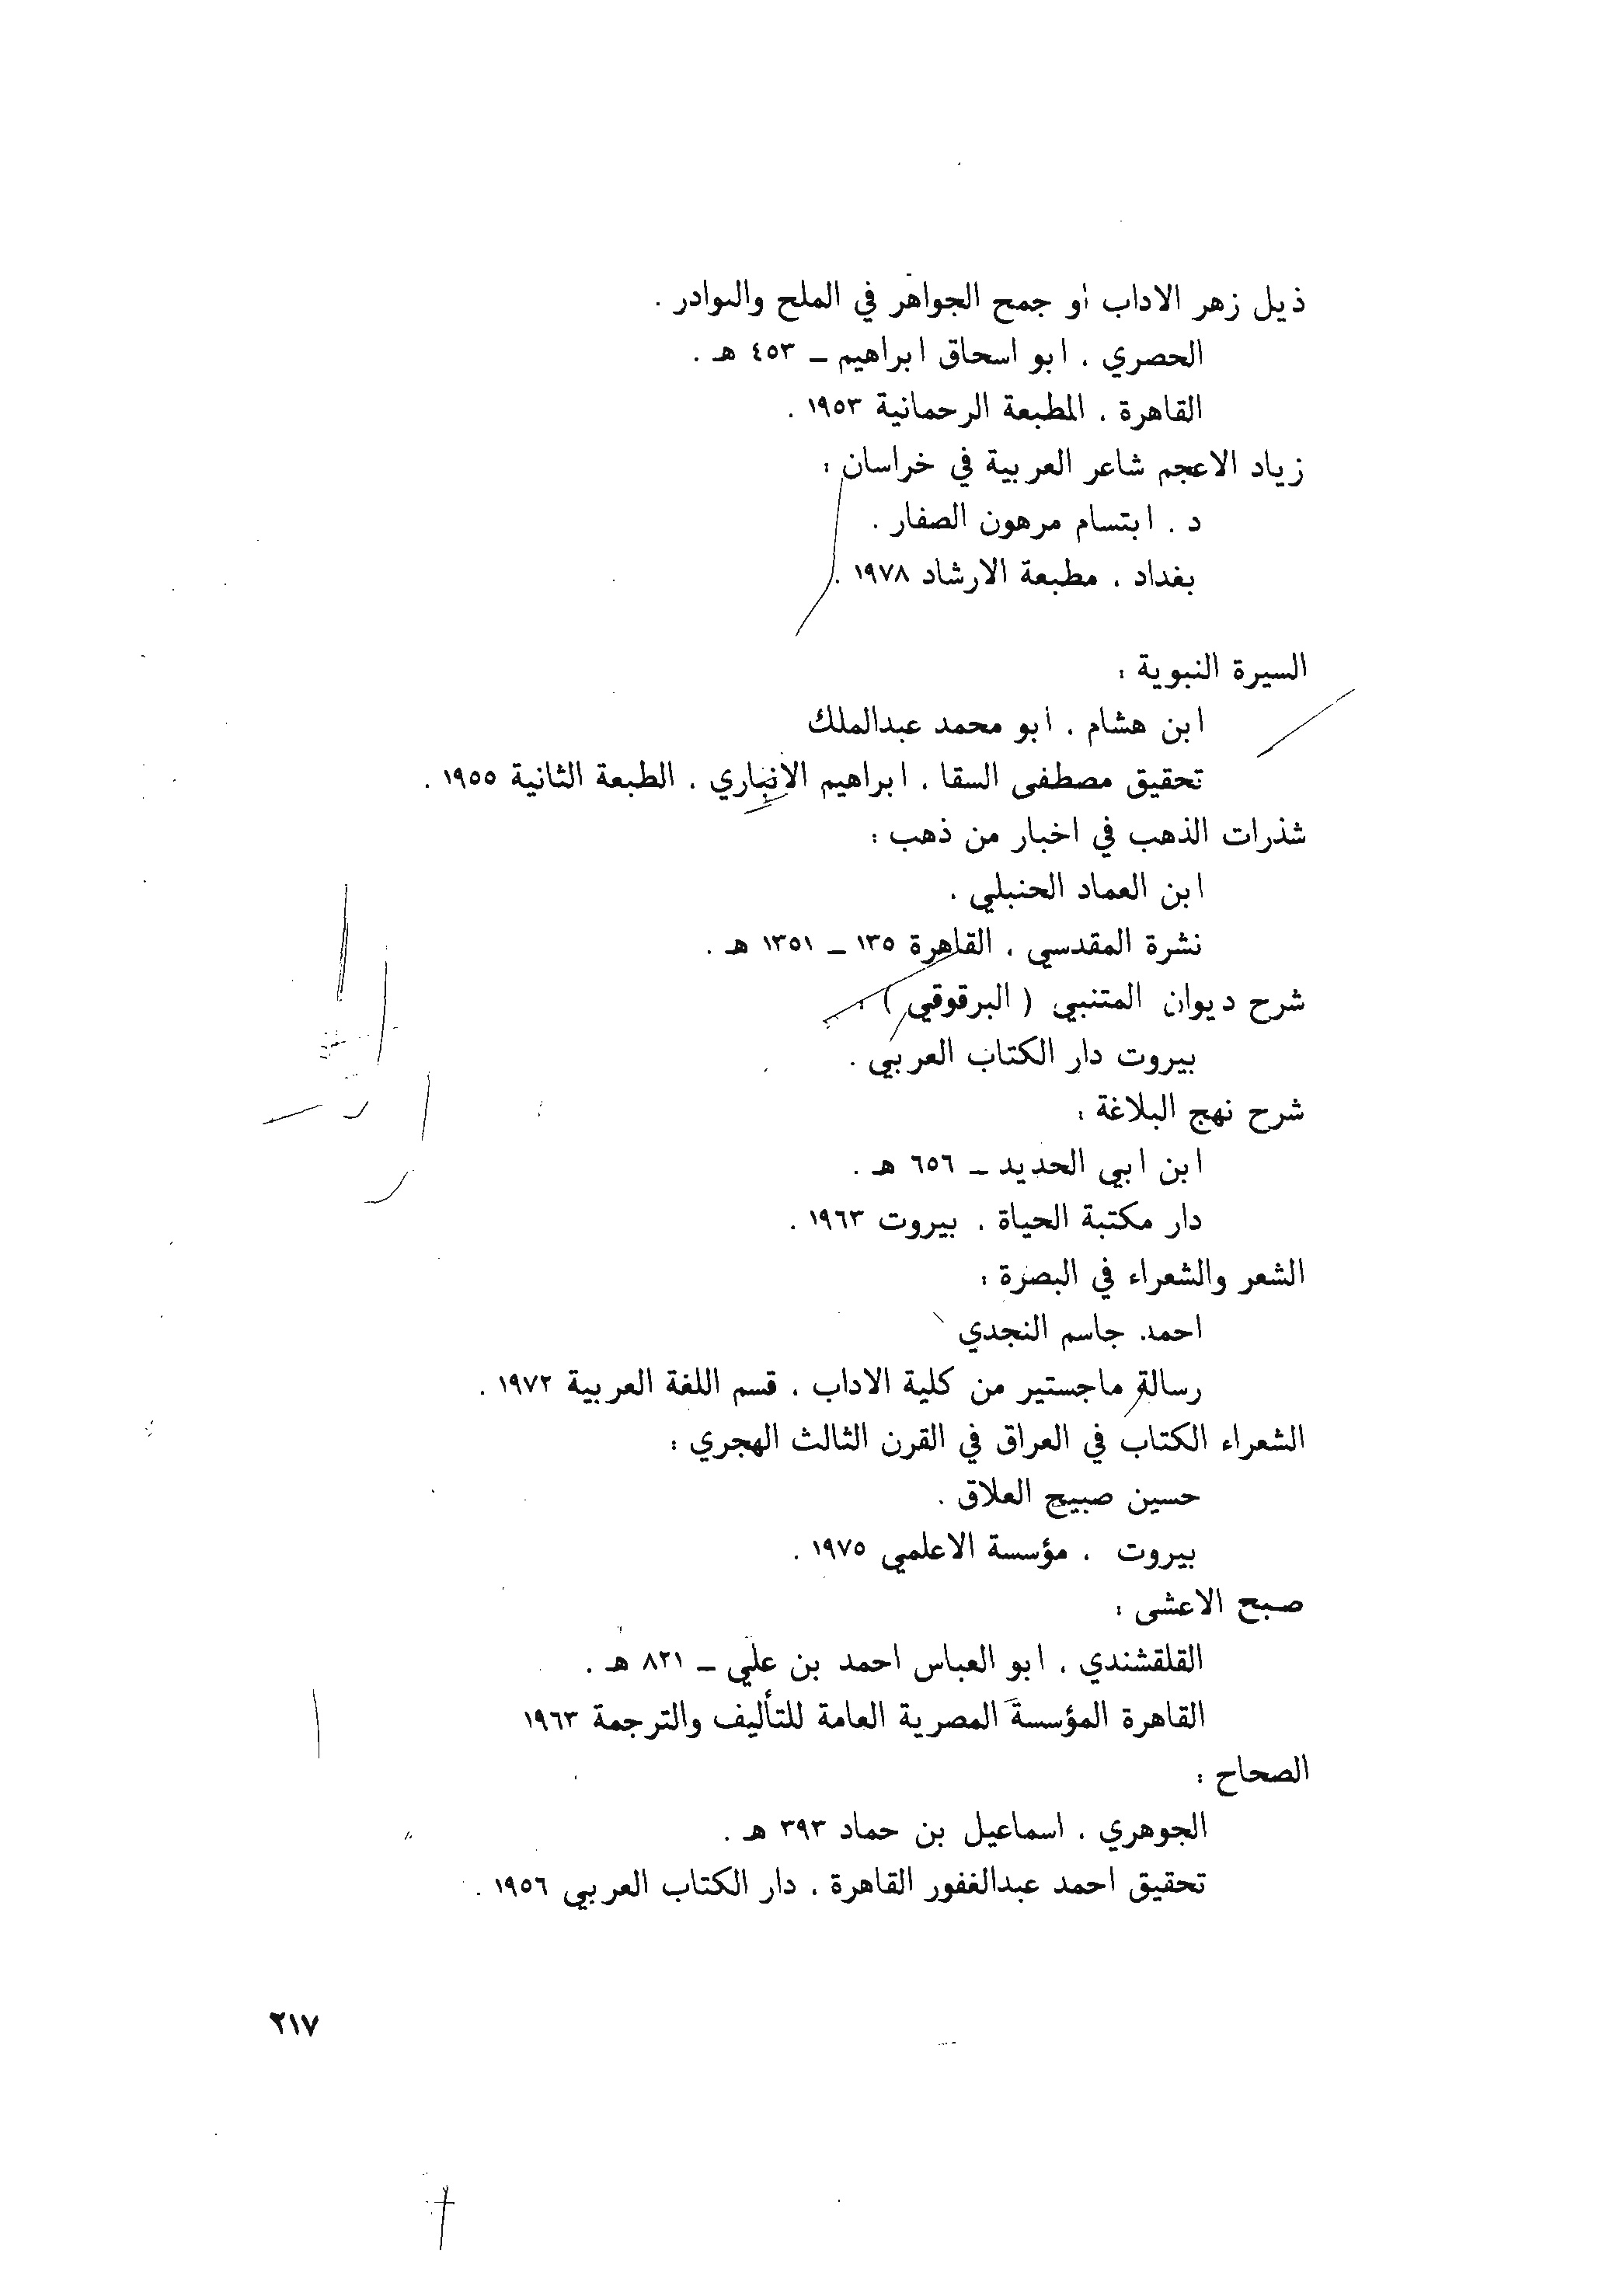 ذيل زهر الاداب أو جمح الجواهر في الملح والنوادر .
الحصري ، ابو اسحاق ابراهيم ــ ٤٥٣ هـ .
القاهرة ، المطبعة الرحمانية ١٩٥٣ .
زياد الاعجم شاعر العربية في خراسان :
د . ابتسام مرهون الصفار .
بغداد ، مطبعة الارشاد ١٩٧٨ .
السيرة النبوية :
ابن هشام ، أبو محمد عبدالملك
تحقيق مصطفى السقا ، ابراهيم الانباري ، الطبعة الثانية ١٩٥٥ .
شذرات الذهب في اخبار من ذهب :
ابن العماد الحنبلي .
نشرة المقدسي ، القاهرة ١٣٥ ــ ١٣٥١ هـ .
شرح ديوان المتنبي ( البرقوقي ) :
بيروت دار الكتاب العربي .
شرح نهج البلاغة :
ابن ابي الحديد ــ ٦٥٦ هـ .
دار مكتبة الحياة ، بيروت ١٩٦٣ .
الشعر والشعراء في البصرة :
احمد جاسم النجدي
رسالة ماجستير من كلية الاداب ، قسم اللغة العربية ١٩٧٢ .
الشعراء الكتاب في العراق في القرن الثالث الهجري :
حسين صبيح العلاق .
بيروت ، مؤسسة الاعلمي ١٩٧٥ .
صبح الاعشى :
القلقشندي ، ابو العباس احمد بن علي ــ ٨٢١ هـ .
القاهرة المؤسسة المصرية العامة للتأليف والترجمة ١٩٦٣
الصحاح :
الجوهري ، اسماعيل بن حماد ٣٩٣ هـ .
تحقيق احمد عبدالغفور القاهرة ، دار الكتاب العربي ١٩٥٦ .
٢١٧